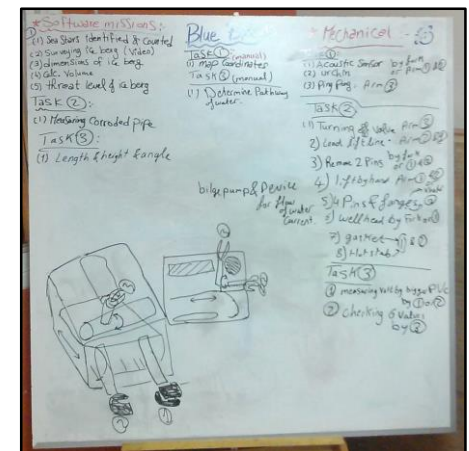 * Software missions:
①
(1) Sea Stars identified & Counted
(2) Surveying ice berg (Video)
(3) dimensions of ice berg
(4) Calc. Volume
(5) threat level of ice berg
Task ②:
(1) Measuring Corroded pipe
Task ③:
(1) Length & height & angle
Blue
Task ① (manual)
(1) Map Coordinates
Task ② (manual)
(1) Determine Pathway
of water.
bilge pump & Device
for flow
of water
Current.
* Mechanical
①:
(1) Acoustic Sensor by
or Arm ①
(2) urchin
(3) Ping Pong. Arm
Task ②
(1) Turning of Valve Arm
2) Lead lift line. Arm
3) Remove 2 Pins by
or ①
4) lift by hand Arm ①
5) 4 Pins & flanges
6) wellhead by
7) gasket
8) Hot stab
Task ③
① measuring Volts by bigger PVC
by ① or ②
② checking 6 Valves
by ②
②
①